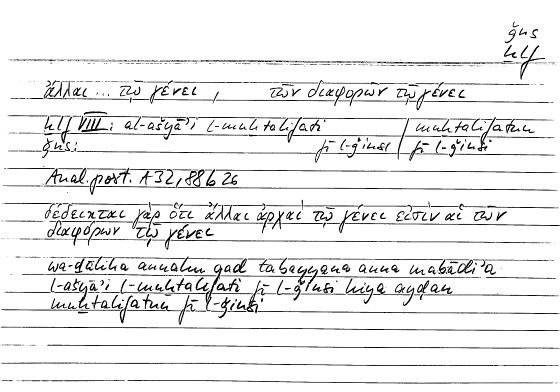 ǧns
ḫlf
ἄλλαι ... τῷ γένει , τῶν διαφορῶν τῷ γένει
ḫlf VIII: al-ašyāʾi l-muḫtalifati | muḫtalifatun
ǧns: fī l-ǧinsi | fī l-ǧinsi
Anal. post. A 32, 88b 26
δέδεικται γὰρ ὅτι ἄλλαι ἀρχαὶ τῷ γένει εἰσὶν αἱ τῶν
διαφόρων τῷ γένει
wa-ḏālika annahu qad tabayyana anna mabādiʾa
l-ašyāʾi l-muḫtalifati fī l-ǧinsi hiya ayḍan
muḫtalifatun fī l-ǧinsi